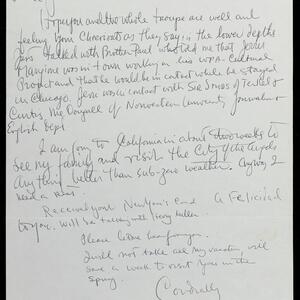 I hope you and two whole troupe are well and
feeling your Cheerioats as they say in the lower depths
Just talked with Brother Paul who told me that Jesus
was in town working on his WPA Cultural
Project and that he would be in contact while he stayed
in Chicago. Jesus was in contact with
of Northwestern University, Journalism or
English Dept.
I am going to California in about two weeks to
see my family and visit the City of the Angels
Anything better than sub-zero weather. Anyway I
need a rest.
Received your New Year's Card A Felicidad
to you. Will be talking with
Please let me hear from you.
I will not take all my vacation, will
save a week to visit you in the
Spring.
Cordially